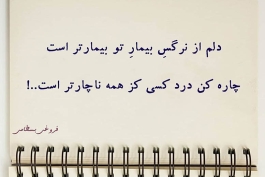 دلم از نرگسِ بیمارِ تو بیمارتر است
چاره کن درد کسی کز همه ناچارتر است..!
فروغی بسطامی